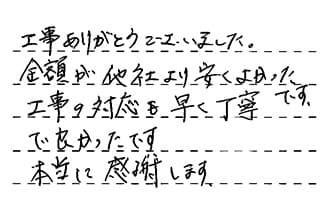 工事ありがとうございました。
金額が他社より安くよかった
です。
工事の対応も早く丁寧
で良かったです
本当に感謝します。